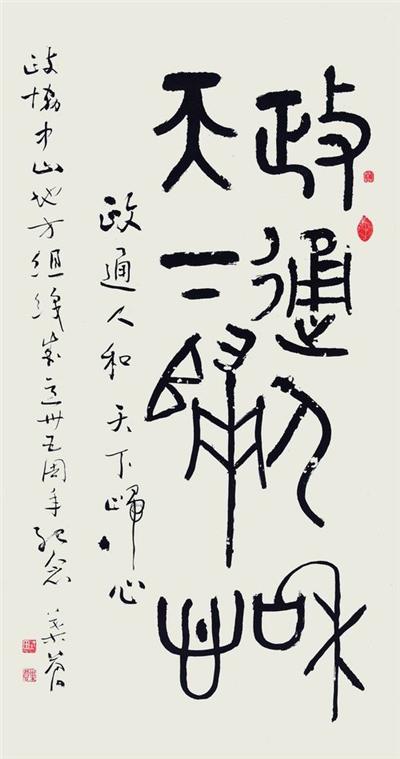 政通人和
天下歸心
政通人和天下歸心
政協中山地方組織成立卅五周年紀念